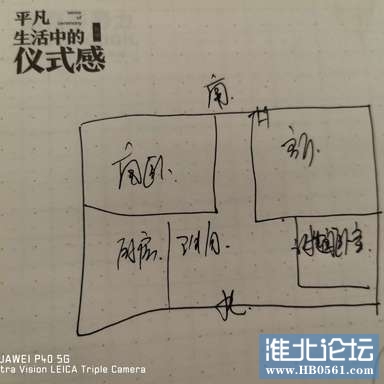 平凡
sense
of
ceremony
生活中的
仪式感
南.
客厅.
南卧.
厨房.
卫生间.
卧室
北
HUAWEI P40 5G
Ultra Vision LEICA Triple Camera
淮北论坛
www.HB0561.com